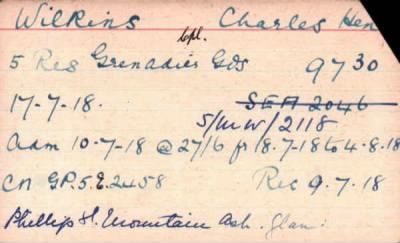 Wilkins Charles Hen
Cpl.
5 Res Grenadier Gds 9730
17-7-18. SEA 2046
5/MW/2118
Adm 10-7-18 @ 27/6 fr 8-7-18 to 4-8-18
CN GP.5.E.2458 Rec 9.7.18
Phillip St. Mountain Ash. Glam: